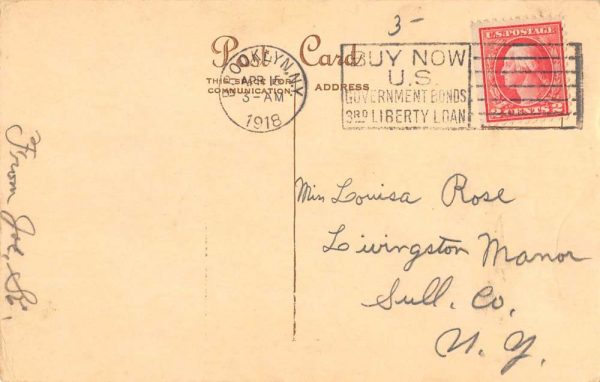 3-
Post Card
THIS SPACE FOR
COMMUNICATION
ADDRESS
BROOKLYN, N.Y.
APR 15
3-AM
1918
BUY NOW
U.S.
GOVERNMENT BONDS
3RD LIBERTY LOAN
U.S. POSTAGE
2 CENTS 2
Miss Louisa Rose
Livingston Manor
Sull. Co.
N. Y.
From Joe,